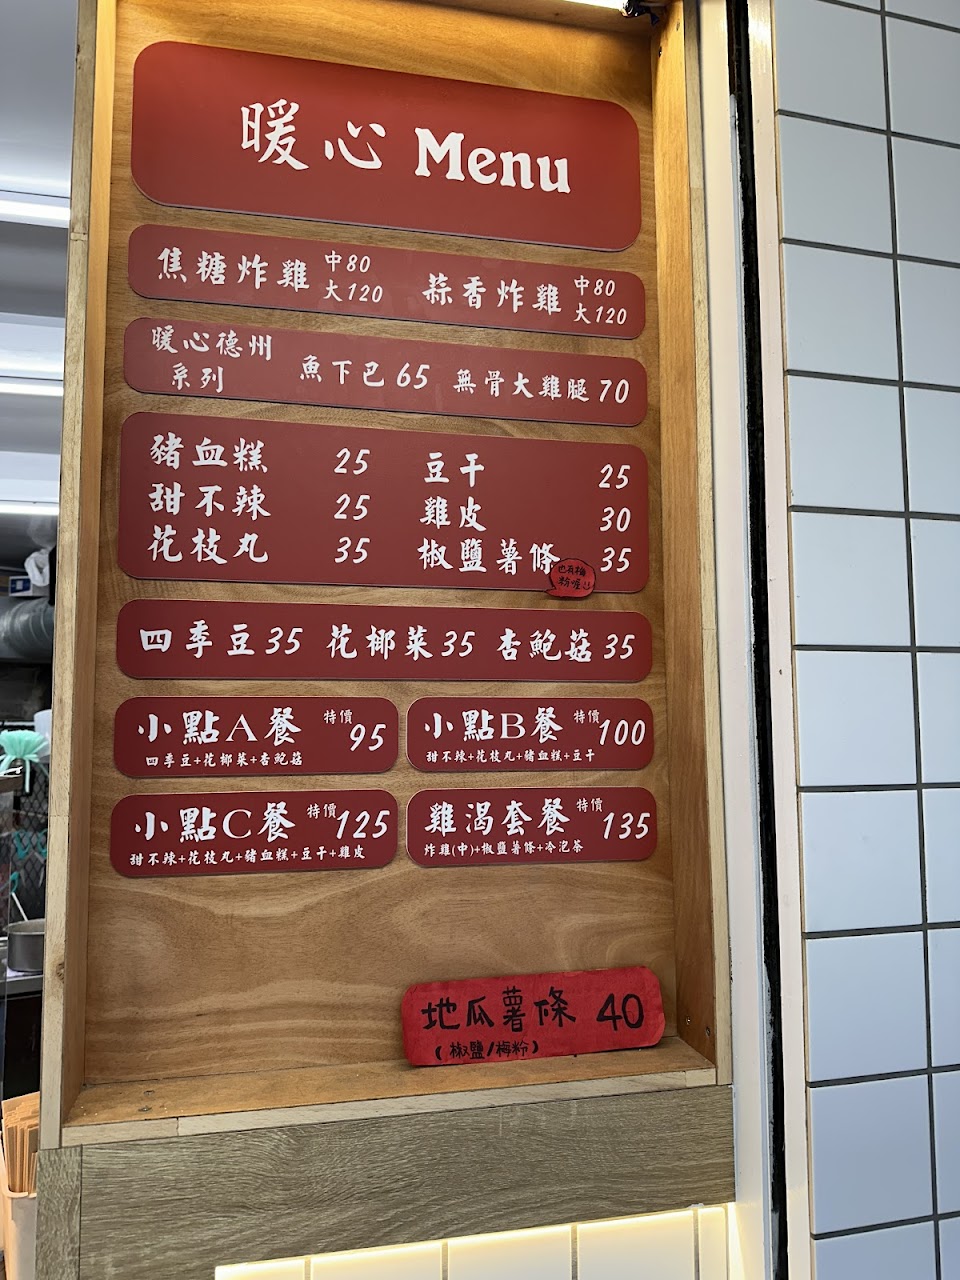 暖心 Menu
焦糖炸雞 中80 大120 蒜香炸雞 中80 大120
暖心德州系列 魚下巴 65 無骨大雞腿 70
豬血糕 25 豆干 25
甜不辣 25 雞皮 30
花枝丸 35 椒鹽薯條 35
也有梅
粉喔
四季豆 35 花椰菜 35 杏鮑菇 35
小點A餐 特價 95
四季豆+花椰菜+杏鮑菇
小點B餐 特價 100
甜不辣+花枝丸+豬血糕+豆干
小點C餐 特價 125
甜不辣+花枝丸+豬血糕+豆干+雞皮
雞渴套餐 特價 135
炸雞(中)+椒鹽薯條+冷泡茶
地瓜薯條 40
(椒鹽/梅粉)